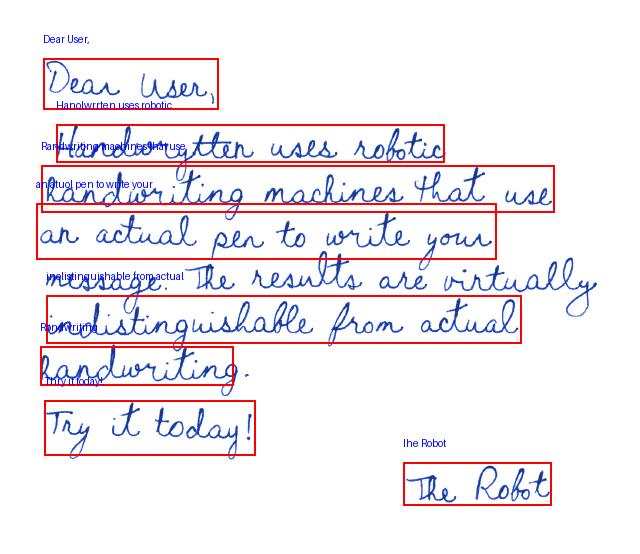 Dear User,
Dear User,
Hanolwrrten uses robotic
Handwrytten uses robotic
Randwriting machines that use
handwriting machines that use
an atuol pen to write your
an actual pen to write your
message. The results are virtually
inelistinguishable from actual
indistinguishable from actual
Randwriting
handwriting.
Thry it today!
Try it today!
Ihe Robot
The Robot